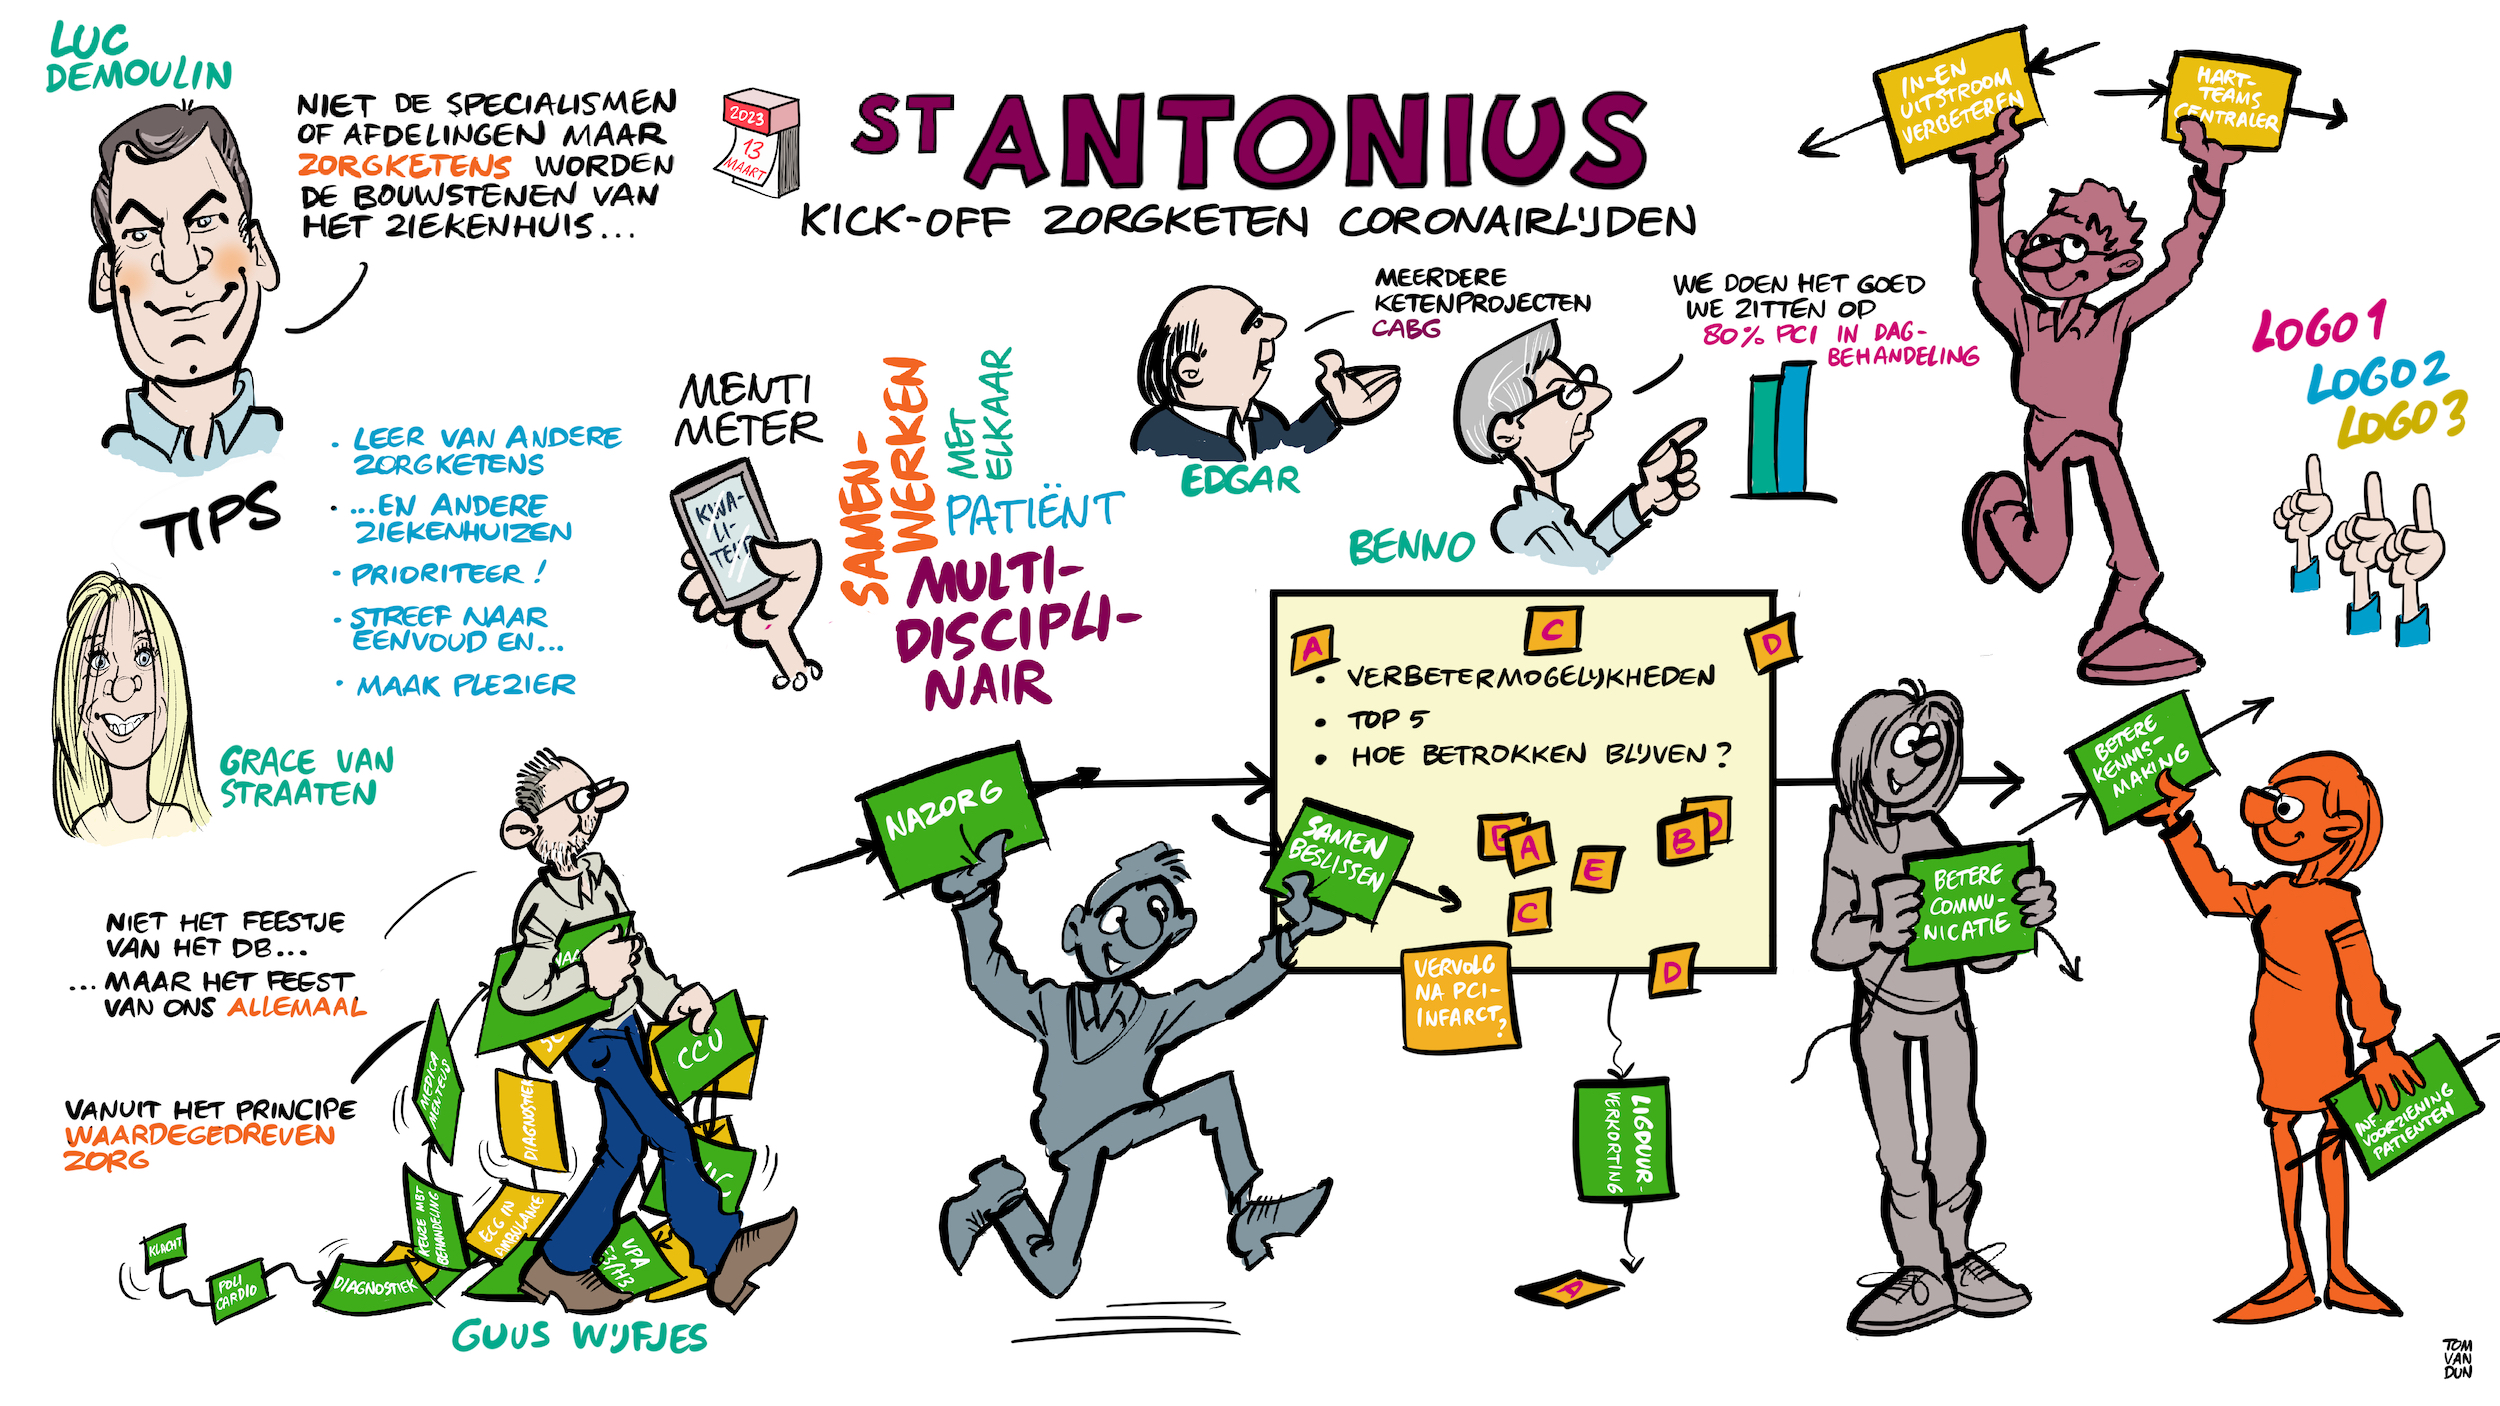 LUC
DEMOULIN
NIET DE SPECIALISMEN
OF AFDELINGEN MAAR
ZORGKETENS WORDEN
DE BOUWSTENEN VAN
HET ZIEKENHUIS...
2023
13
MAART
ST ANTONIUS
KICK-OFF ZORGKETEN CORONAIRLIJDEN
IN- EN
UITSTROOM
VERBETEREN
HART-
TEAMS
CENTRALER
MEERDERE
KETENPROJECTEN
CABG
EDGAR
WE DOEN HET GOED
WE ZITTEN OP
80% PCI IN DAG-
BEHANDELING
BENNO
LOGO 1
LOGO 2
LOGO 3
TIPS
· LEER VAN ANDERE
ZORGKETENS
· ...EN ANDERE
ZIEKENHUIZEN
· PRIORITEER!
· STREEF NAAR
EENVOUD EN...
· MAAK PLEZIER
GRACE VAN
STRAATEN
MENTI
METER
KWA-
LI-
SAMEN-
WERKEN
MET
ELKAAR
PATIËNT
MULTI-
DISCIPLI-
NAIR
A
C
D
• VERBETERMOGELIJKHEDEN
• TOP 5
• HOE BETROKKEN BLIJVEN?
A
E
B
D
C
D
VERVOLG
NA PCI-
INFARCT?
LIGDUUR-
VERKORTING
A
NAZORG
SAMEN
BESLISSEN
BETERE
COMMU-
NICATIE
BETERE
KENNIS-
MAKING
INF.
VOORZIENING
PATIENTEN
NIET HET FEESTJE
VAN HET DB...
...MAAR HET FEEST
VAN ONS ALLEMAAL
VANUIT HET PRINCIPE
WAARDEGEDREVEN
ZORG
KLACHT
POLI
CARDIO
DIAGNOSTIEK
KEUZE MBT
BEHANDELING
MEDICA
MENTEUS
DIAGNOSTIEK
ECG IN
AMBULANCE
CCU
VPA
GUUS WIJFJES
TOM
VAN
DUN